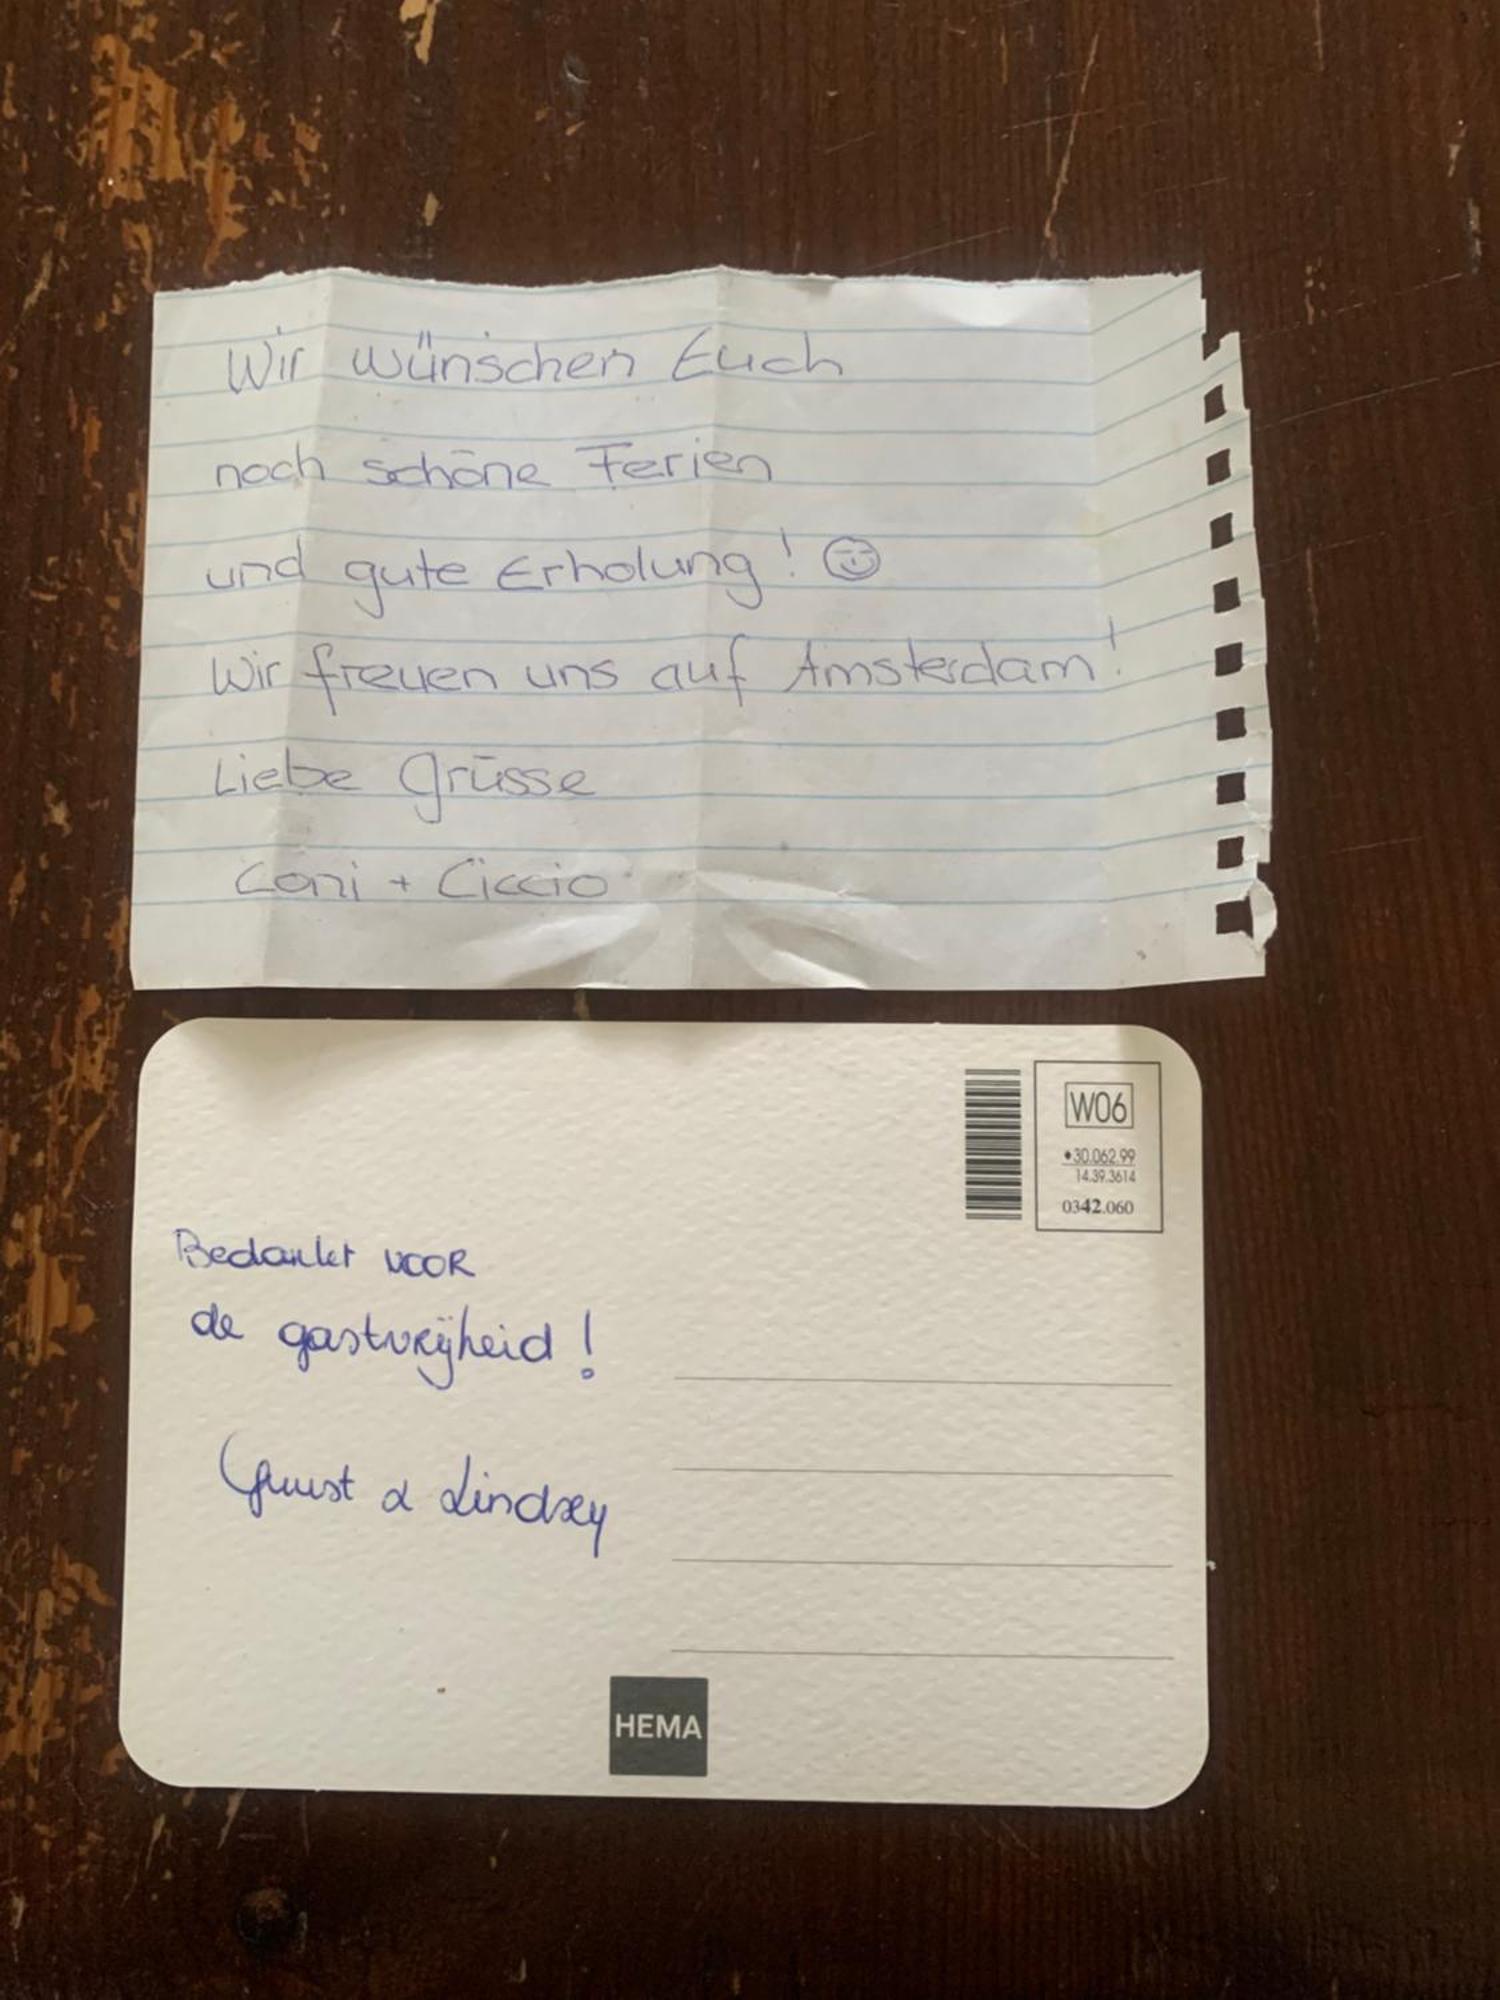 Wir wünschen Euch
noch schöne Ferien
und gute Erholung! ☺
Wir freuen uns auf Amsterdam!
Liebe Grüsse
Coni + Ciccio
W06
•30.062.99
14.39.3614
0342.060
Bedankt voor
de gastvrijheid!
Guust & Lindsey
HEMA